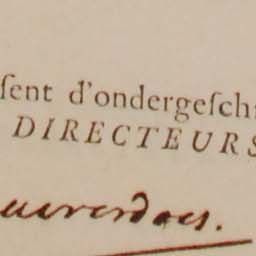 ſent d'ondergeſch
DIRECTEURS